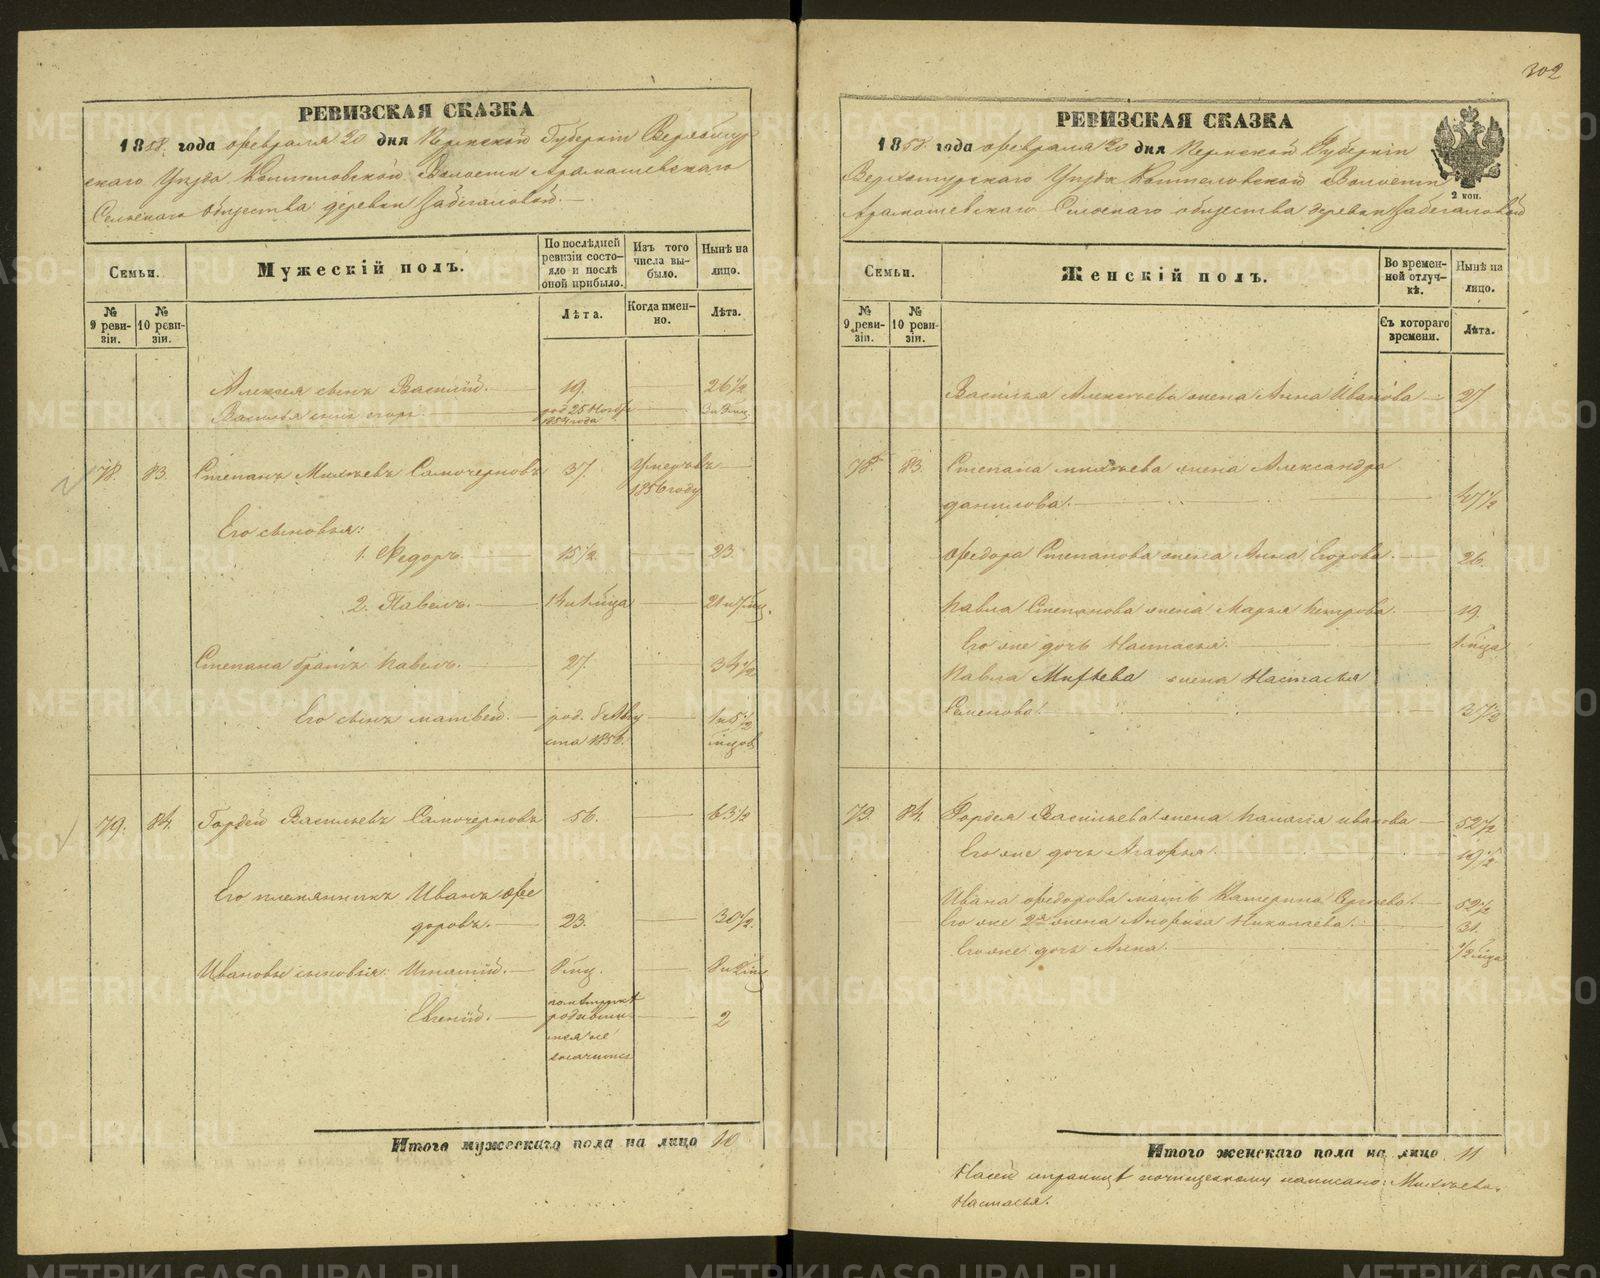 302
РЕВИЗСКАЯ СКАЗКА
1858 года февраля 20 дня Пермской Губерніи Верхотур
скаго Уѣзда Коптеловской Волости Арамашевскаго
Сельскаго общества деревни Забегаловой.
Семьи.
Мужескій полъ.
По послѣдней ревизіи состояло и послѣ оной прибыло.
Изъ того числа выбыло.
Нынѣ на лицо.
№ 9 ревизіи.
№ 10 ревизіи.
Лѣта.
Когда именно.
Лѣта.
Алексея сынъ Василій. 19. 26 1/2
Василья сынъ Егоръ. род 25 Ноябр 1854 года
78. 83. Степанъ Михѣевъ Самочерновъ 37. Умеръ въ
1856 году
Его сыновья:
1. Федоръ 15 1/2 23.
2. Павелъ. 21 и 7 мц.
Степана братъ Павелъ. 27. 34 1/2
Его сынъ Матвей. род. 6 Авгу
ста 1856. 1 и 5 1/2
мцов
79. 84. Гордей Васильевъ Самочерновъ 56. 63 1/2
Его племянникъ Иванъ Фе
доровъ. 23. 30 1/2
Ивановы сыновья: Игнатий.
Евгений. 2
Итого мужескаго пола на лицо 10
РЕВИЗСКАЯ СКАЗКА
1858 года февраля 20 дня Пермской Губерніи
Верхотурскаго Уѣзда Коптеловской Волости
Арамашевскаго Сельскаго общества деревни Забегаловой
2 коп.
Семьи.
Женскій полъ.
Во временной отлучкѣ.
Нынѣ на лицо.
№ 9 ревизіи.
№ 10 ревизіи.
Съ котораго времени.
Лѣта.
Василья Алексѣева жена Анна Иванова 27
78. 83. Степана Михѣева жена Александра
Данилова. 47 1/2
Федора Степанова жена Анна Егорова. 26.
Павла Степанова жена Марья Петрова. 19.
Его же дочь Настасья.
Павла Михѣева жена Настасья
Семенова. 37 1/2
79. 84. Гордея Васильева жена Палагія Иванова 52 1/2
Его же дочь Агафья. 19 1/2
Ивана Федорова мать Катерина Сергѣева. 52 1/2
Его же 2я жена Анфиса Николаева. 31.
Его же дочь Анна. 1/2 мца
Итого женскаго пола на лицо 11
На сей страницѣ почищенному написано: Михѣева,
Настасья.
METRIKI.GASO-URAL.RU